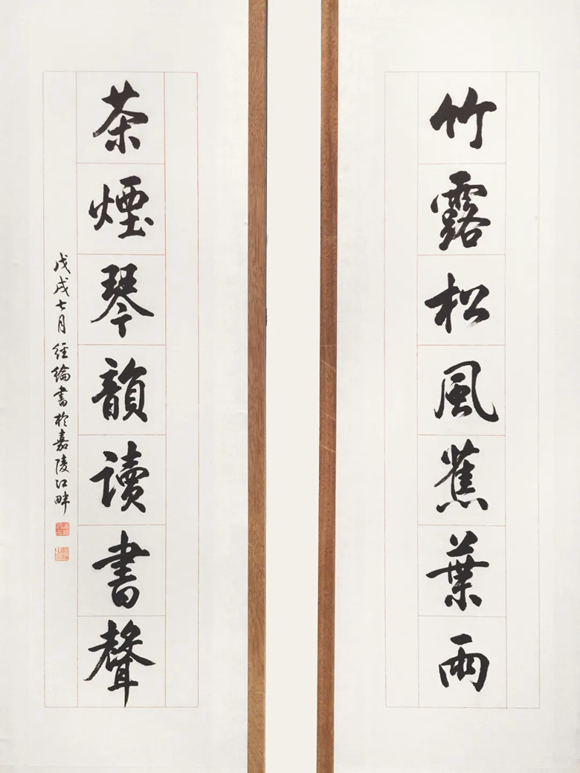 竹露松風蕉葉雨
茶煙琴韻讀書聲
戊戌七月經綸書於嘉陵江畔